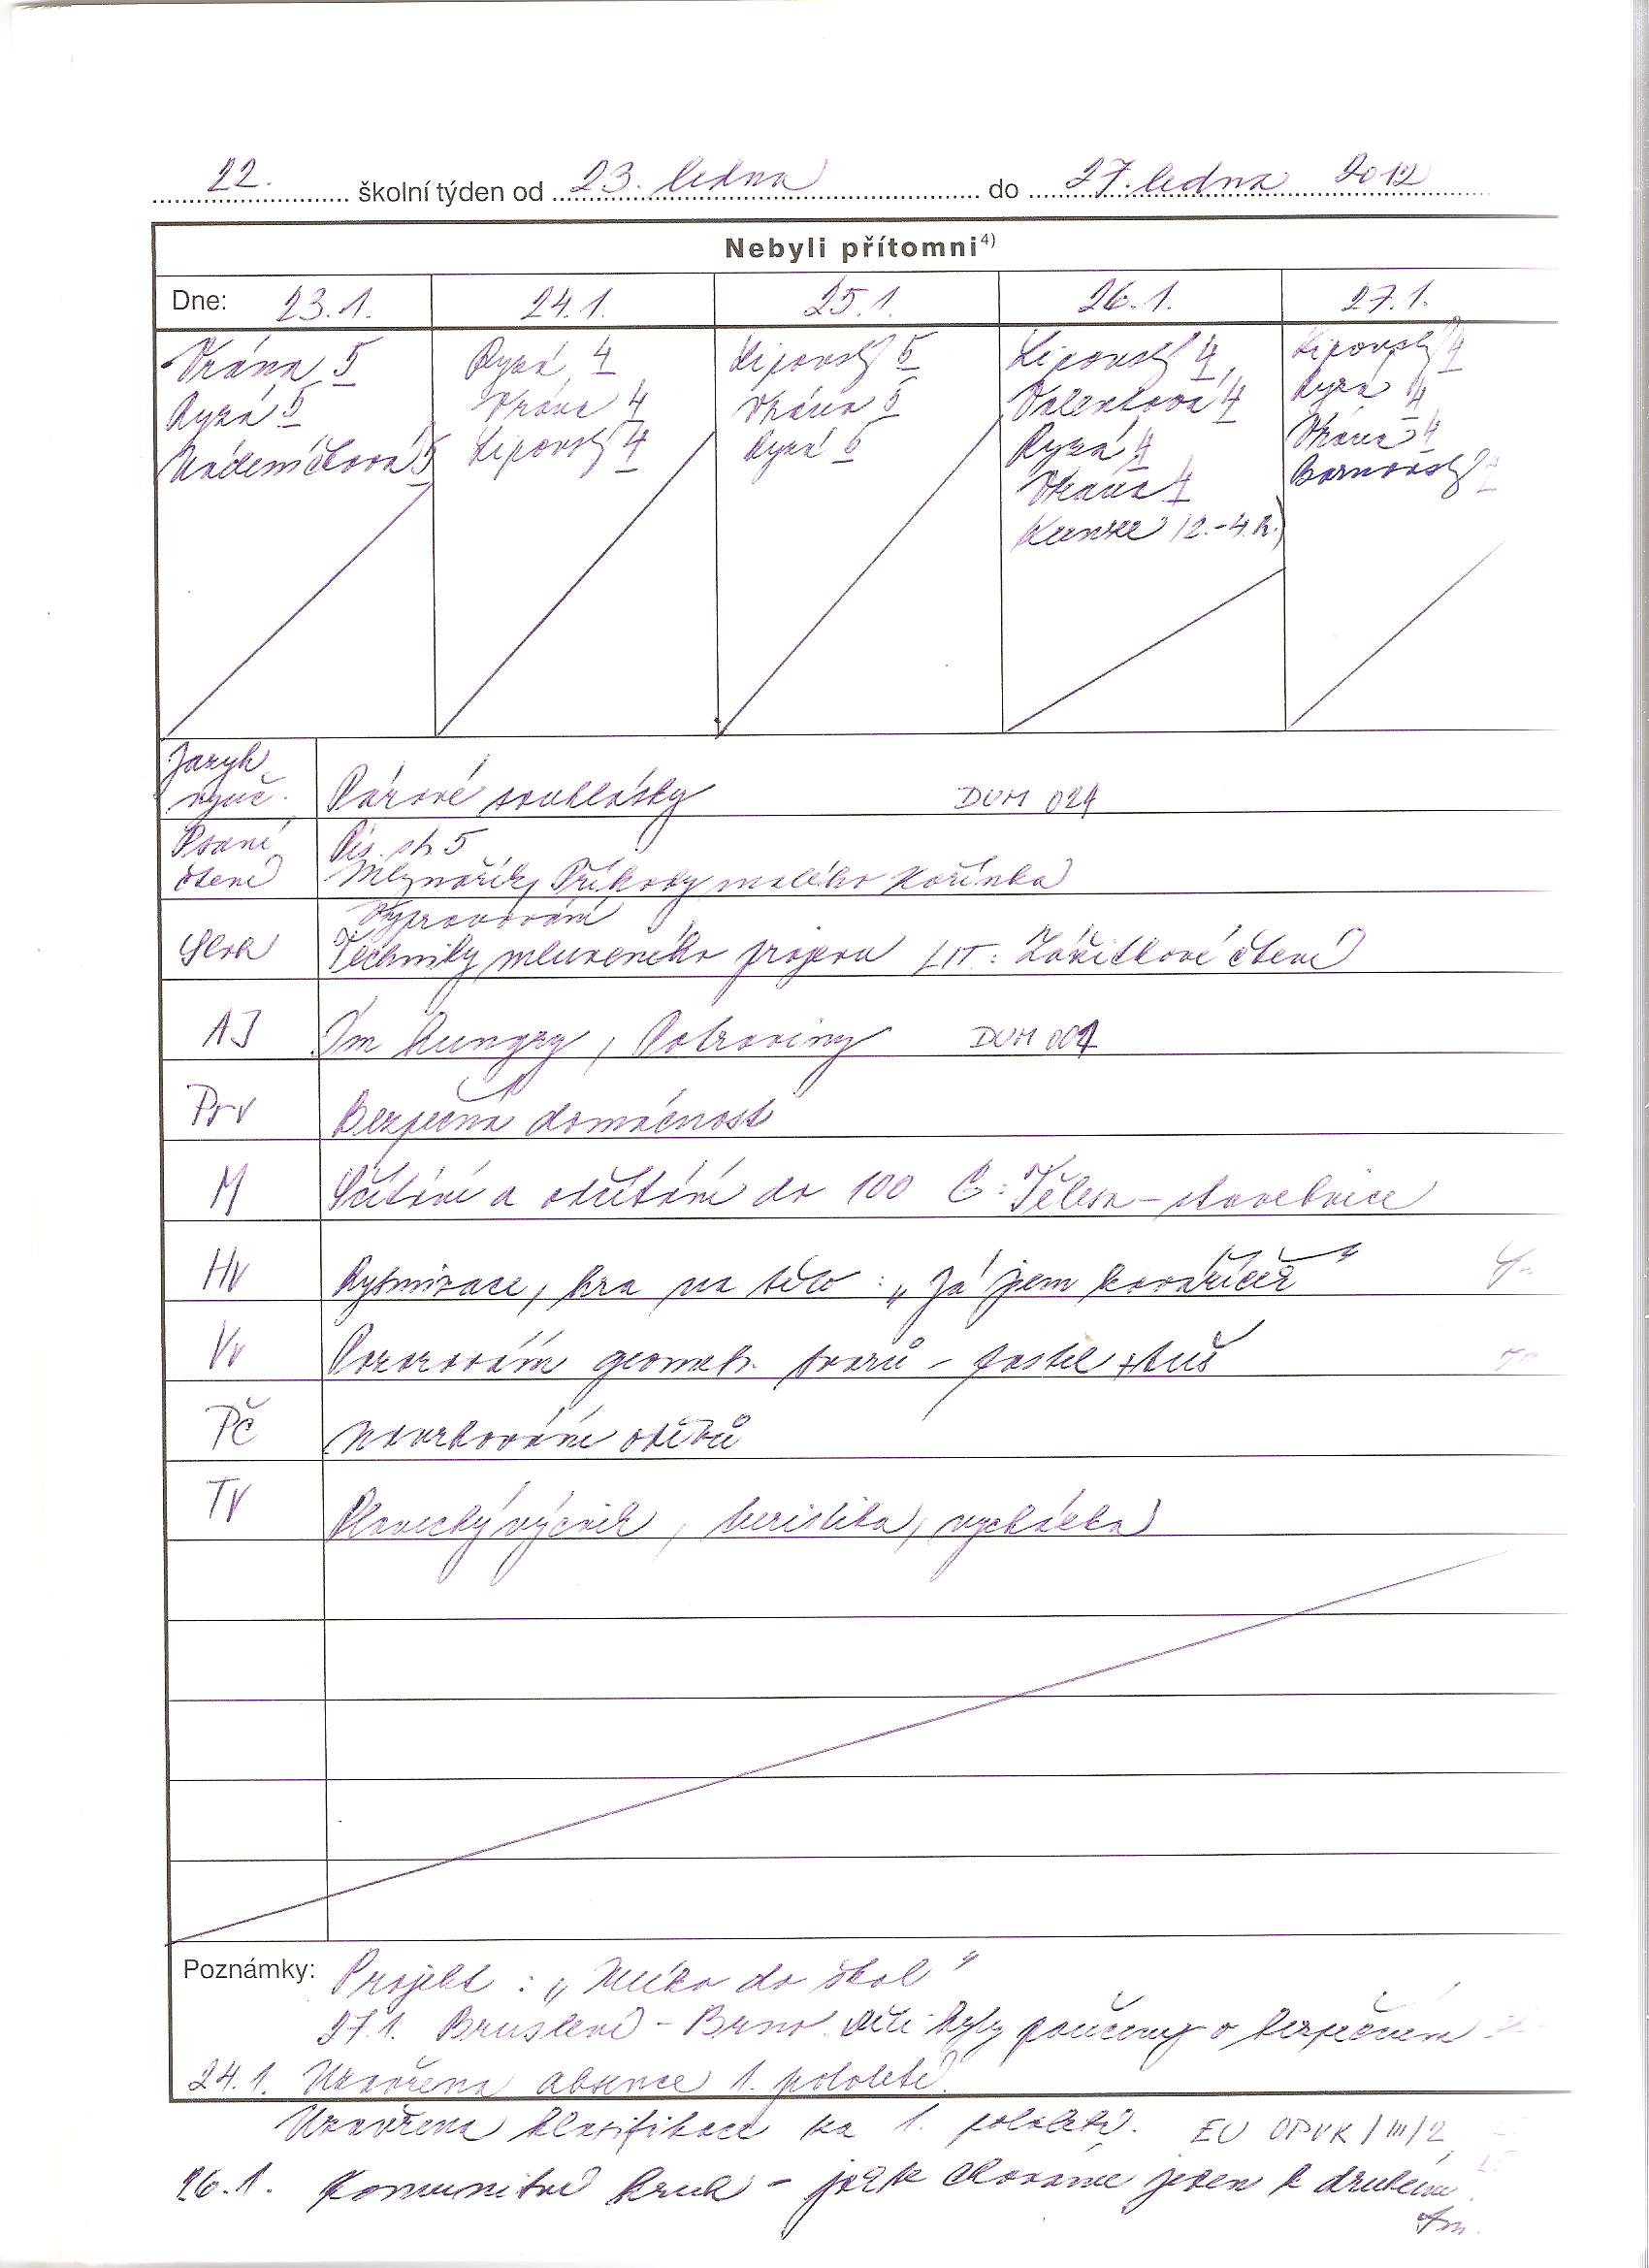 22. školní týden od 23. ledna do 27. ledna 2012
Nebyli přítomni4)
Dne: 23.1. 24.1. 25.1. 26.1. 27.1.
Vrána 5 Ryzá 4 Lipovský 5 Lipovský 4 Lipovský 4
Ryzá 5 Vrána 4 Vrána 5 Valentová 4 Ryzá 4
5 Lipovský 4 Ryzá 5 Ryzá 4 Vrána 4
Vrána 4 Barnovský 4
Kunze (2.-4.h.)
Jazyk
vyuč. Párové souhlásky DUM 024
Psaní Pís. str 5
čtení Mlynařík, Příhody malého Kořínka
Vypravování
Sloh Techniky mluveného projevu LIT: Zážitkové čtení
AJ I'm hungry, Potraviny DUM 004
Prv Bezpečná domácnost
M Sčítání a odčítání do 100 G: Tělesa - stavebnice
Hv Rytmizace, hra na tělo: „Já jsem kovaříček“
Vv Pozorování geometr. tvarů - pastel + tuš
Pč Navrhování oděvů
TV Plavecký výcvik, turistika, vycházka
Poznámky: Projekt: „Mléko do škol“
27.1. Bruslení - Brno děti byly poučeny o bezpečném
24.1. Uzavřena absence 1. pololetí.
Uzavřena klasifikace za 1. pololetí. EU OPVK/III/2
26.1. Komunitní kruh - jak se chováme jeden k druhému